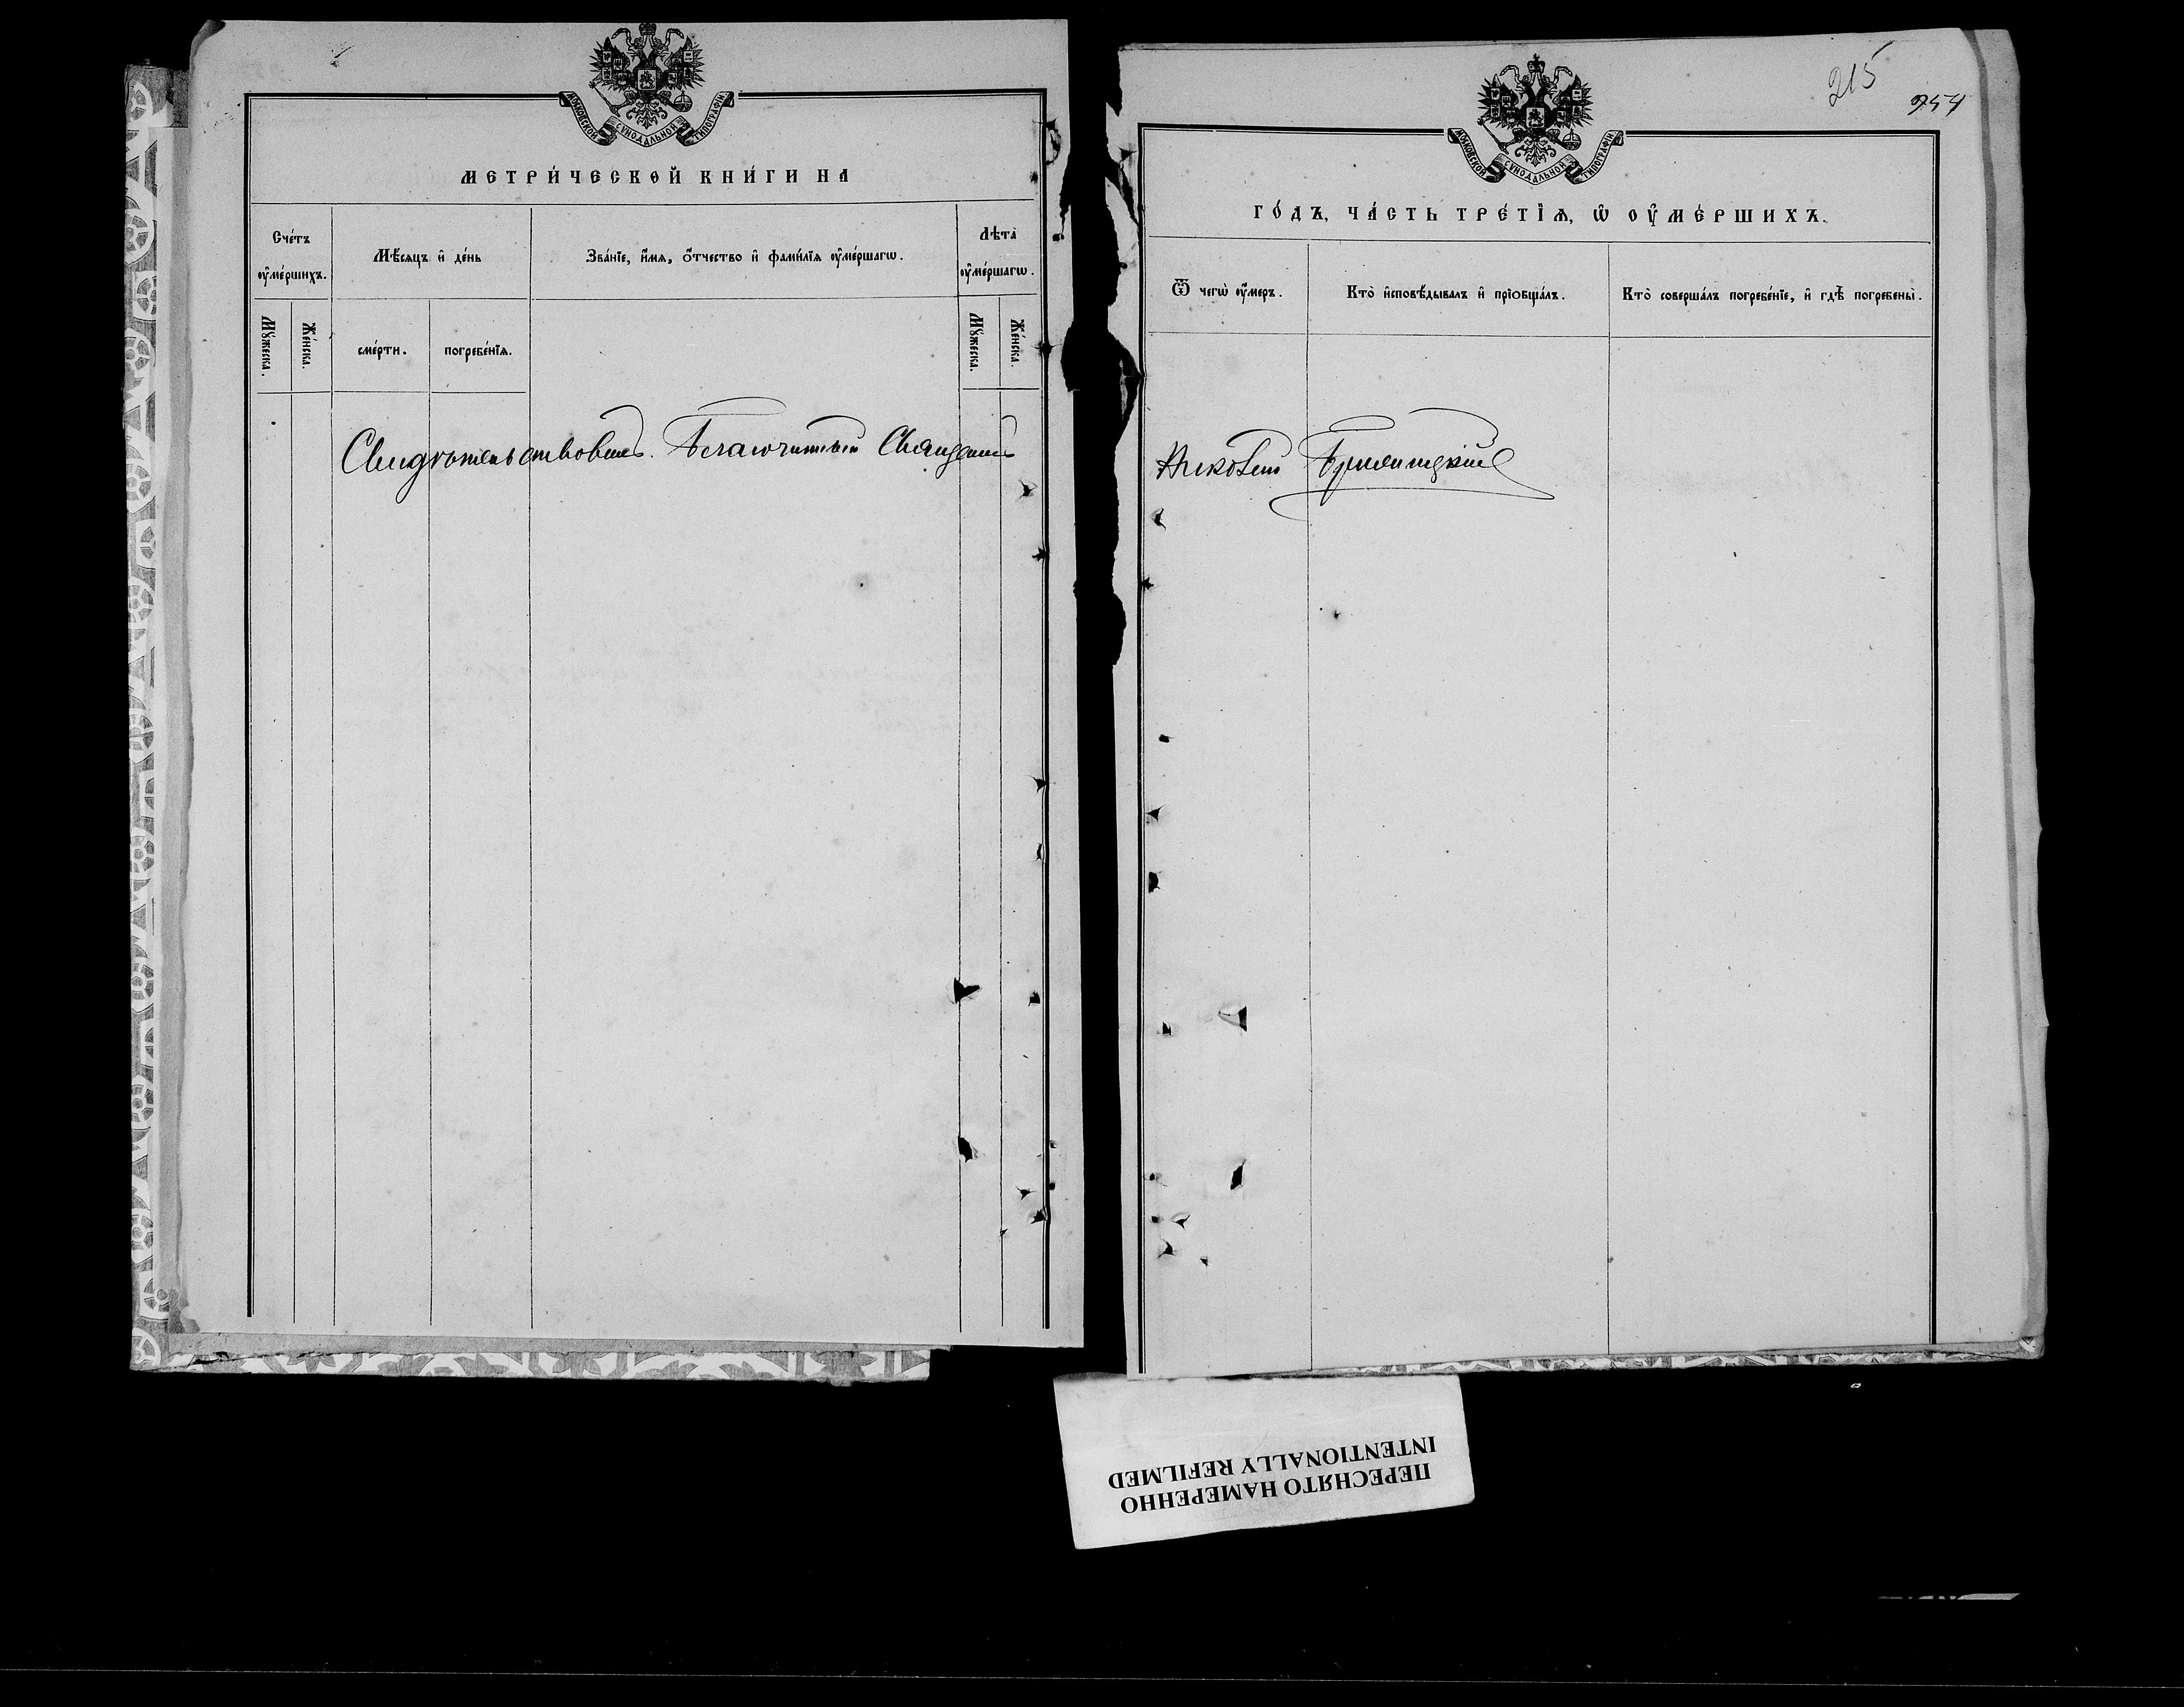 МОСКОВСКОЙ СѴНОДАЛЬНОЙ ТИПОГРАФІИ
МЕТРИ́ЧЕСКОЙ КНИ́ГИ НА
Сче́тъ ᲂу҆ме́ршихъ.
Мѣ́сяцъ и҆ де́нь
Зва́нїе, и҆́мя, ѻ҆́тчество и҆ фами́лїя ᲂу҆ме́ршагѡ.
Лѣта̀ ᲂу҆ме́ршагѡ.
Мꙋ́жеска.
Же́нска.
сме́рти.
погребе́нїѧ.
Мꙋ́жеска.
Же́нска.
Свидѣтельствовалъ. Благочинный Священникъ
215
254
МОСКОВСКОЙ СѴНОДАЛЬНОЙ ТИПОГРАФІИ
ГО́ДЪ, ЧА́СТЬ ТРЕ́ТЇѦ, Ѡ҆ ОУ҆МЕ́РШИХЪ.
Ѿ чегѡ̀ ᲂу҆́меръ.
Кто̀ и҆сповѣ́дывалъ и҆ прїобща́лъ.
Кто̀ соверша́лъ погребе́нїе, и҆ гдѣ̀ погребены̀.
Николай
ПЕРЕСНЯТО НАМЕРЕННО
INTENTIONALLY REFILMED